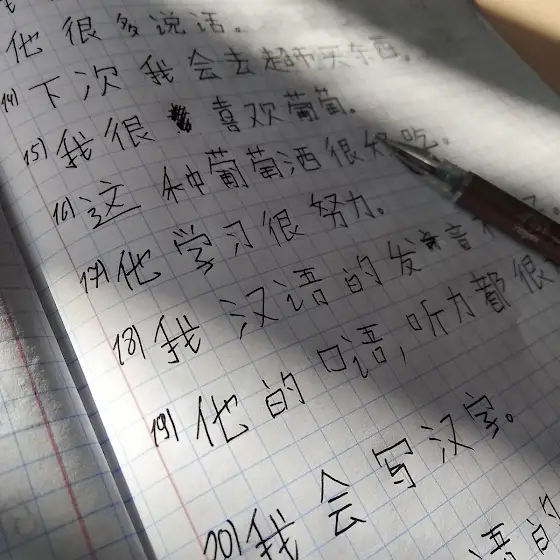 他很多说话。
14) 下次我会去超市买东西。
15) 我很喜欢葡萄。
16) 这种葡萄酒很好吃。
17) 他学习很努力。
18) 我汉语的发音
19) 他的口语,听力都很
我会写汉字。
20) 我
语的